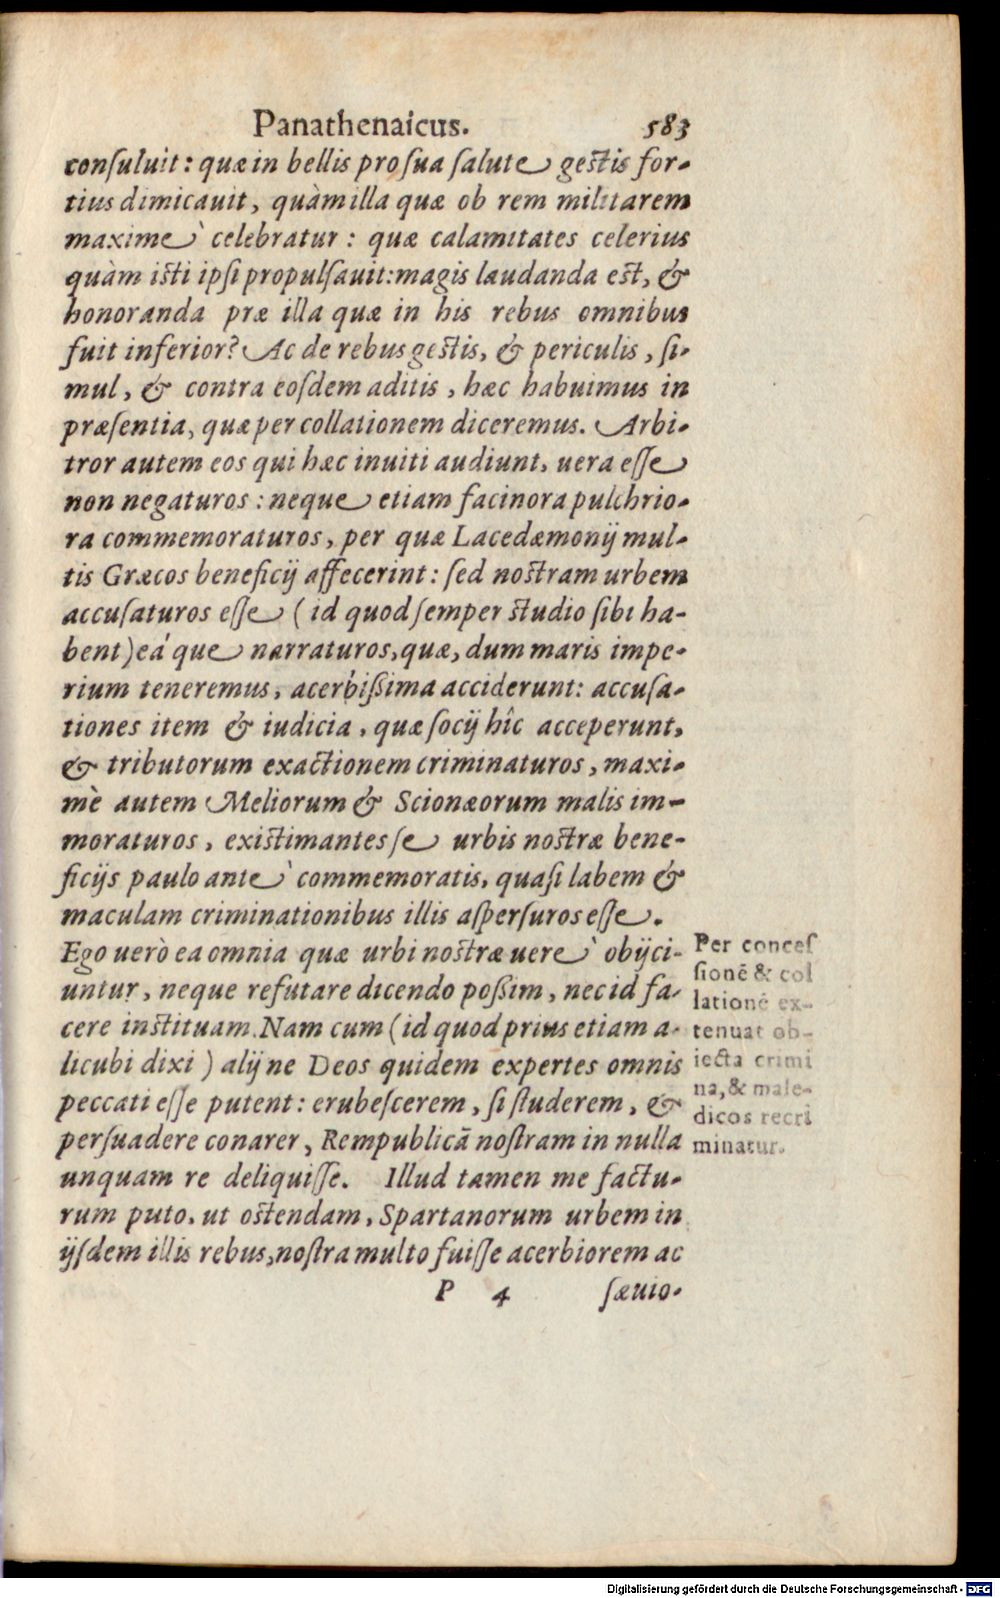 Panathenaicus. 583
conſuluit: quæ in bellis pro ſua ſalute geſtis for-
tius dimicauit, quàm illa quæ ob rem militarem
maximè celebratur: quæ calamitates celerius
quàm iſti ipſi propulſauit: magis laudanda eſt, &
honoranda præ illa quæ in his rebus omnibus
fuit inferior? Ac de rebus geſtis, & periculis, ſi-
mul, & contra eoſdem aditis, hæc habuimus in
præſentia, quæ per collationem diceremus. Arbi-
tror autem eos qui hæc inuiti audiunt, uera eſſe
non negaturos: neque etiam facinora pulchrio-
ra commemoraturos, per quæ Lacedæmonij mul-
tis Græcos beneficij affecerint: ſed noſtram urbem
accuſaturos eſſe (id quod ſemper ſtudio ſibi ha-
bent) eáque narraturos, quæ, dum maris impe-
rium teneremus, acerbißima acciderunt: accuſa-
tiones item & iudicia, quæ ſocij hîc acceperunt,
& tributorum exactionem criminaturos, maxi-
mè autem Meliorum & Scionæorum malis im-
moraturos, exiſtimantes ſe urbis noſtræ bene-
ficijs paulo antè commemoratis, quaſi labem &
maculam criminationibus illis aſperſuros eſſe.
Ego uerò ea omnia quæ urbi noſtræ uerè obijci-
untur, neque refutare dicendo poßim, nec id fa-
cere inſtituam. Nam cum (id quod prius etiam a-
licubi dixi) alij ne Deos quidem expertes omnis
peccati eſſe putent: erubeſcerem, ſi ſtuderem, &
perſuadere conarer, Rempublicā noſtram in nulla
unquam re deliquiſſe. Illud tamen me factu-
rum puto, ut oſtendam, Spartanorum urbem in
ijſdem illis rebus, noſtra multo fuiſſe acerbiorem ac
P 4 ſæuio-
Per conceſ
ſionē & col
lationē ex-
tenuat ob-
iecta crimi
na, & male-
dicos recri
minatur.
Digitalisierung gefördert durch die Deutsche Forschungsgemeinschaft - DFG